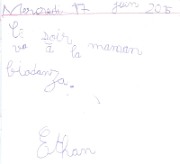 Mercredi 17 juin 2015
Ce soir
va à la maman
biodanza.
Ethan